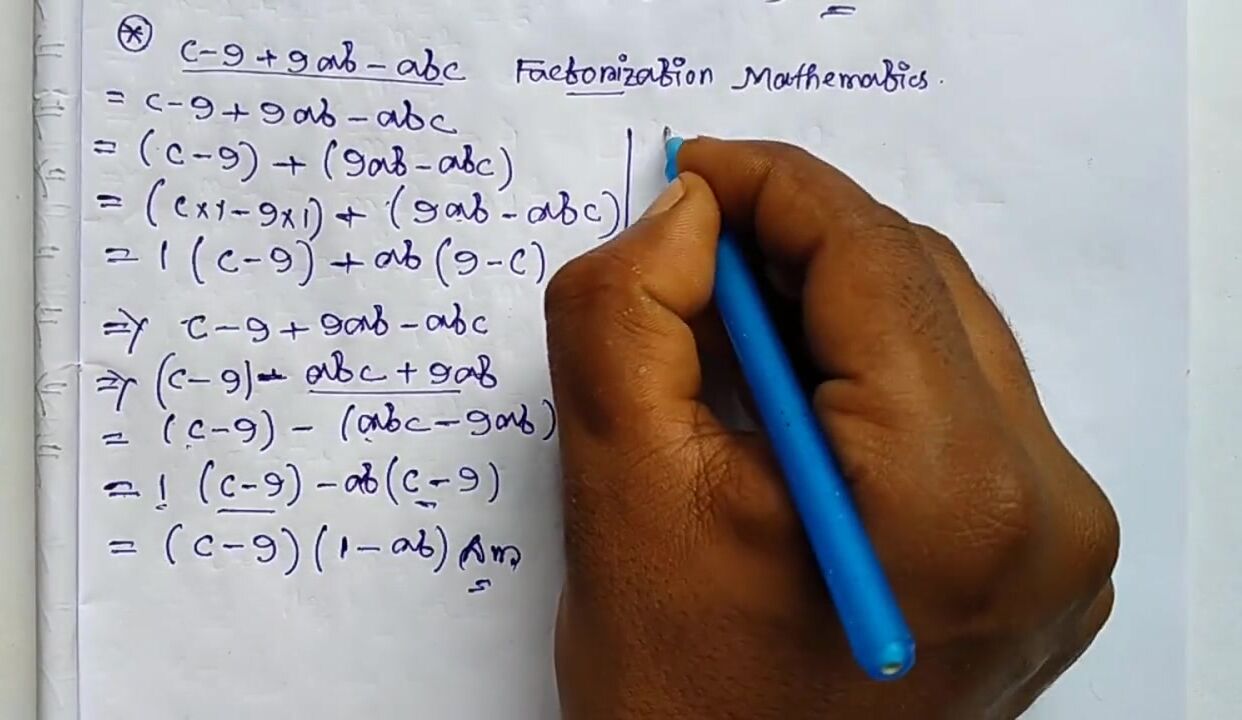 * c-9+9ab-abc Factorization Mathematics.
= c-9+9ab-abc
= (c-9)+(9ab-abc)
= (c×1-9×1)+(9ab-abc)
= 1(c-9)+ab(9-c)
⇒ c-9+9ab-abc
⇒ (c-9)-abc+9ab
= (c-9)-(abc-9ab)
= 1(c-9)-ab(c-9)
= (c-9)(1-ab) Ans